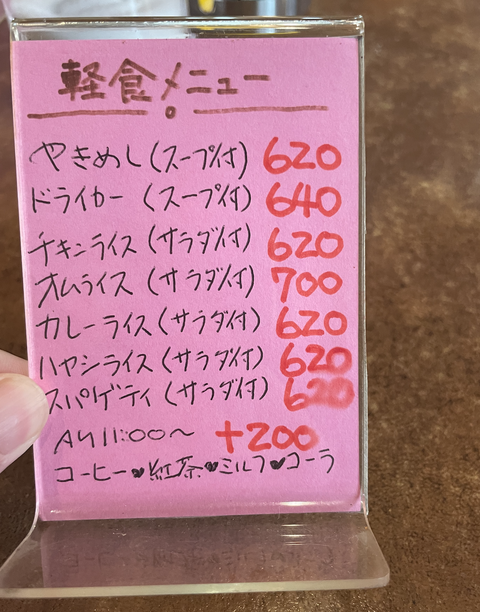 軽食メニュー
やきめし(スープ付) 620
ドライカー (スープ付) 640
チキンライス(サラダ付) 620
オムライス(サラダ付) 700
カレーライス(サラダ付) 620
ハヤシライス(サラダ付) 620
スパゲティ(サラダ付) 620
AM11:00〜 +200
コーヒー♥紅茶♥ミルク♥コーラ